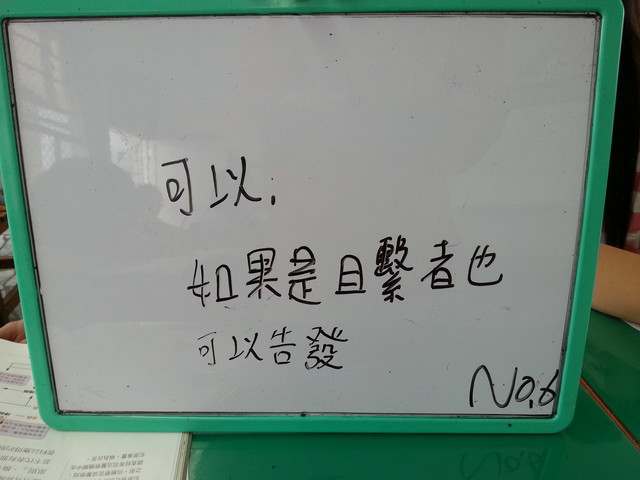 可以,
如果是目繫者也
可以告發
No.6